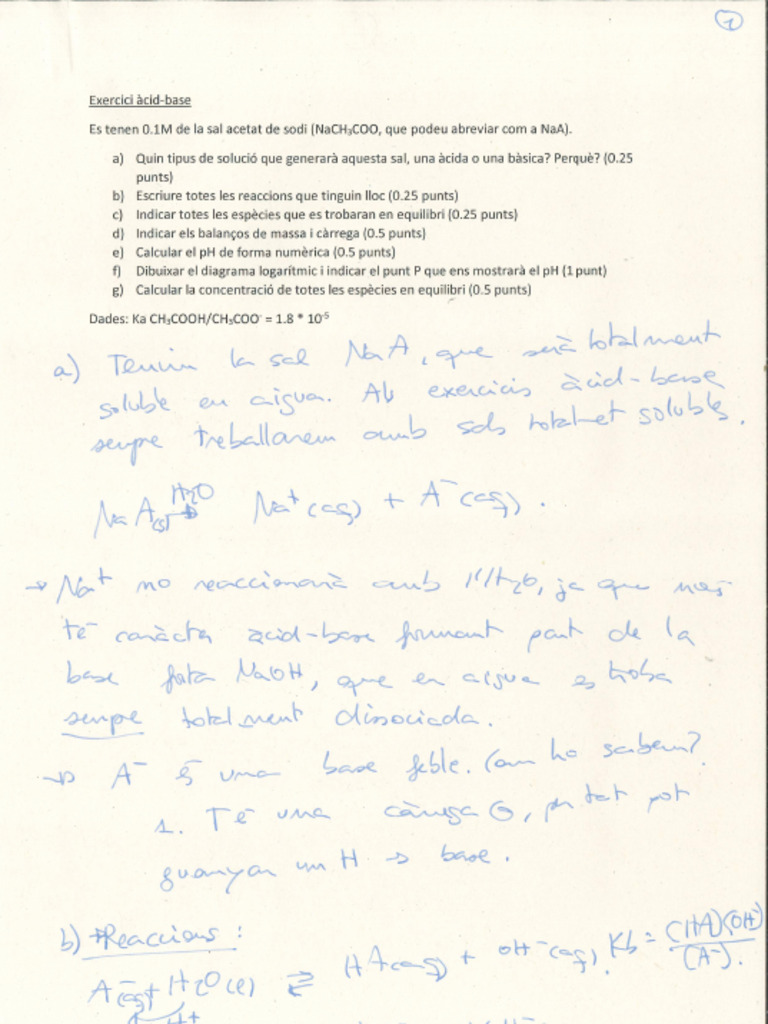 1
Exercici àcid-base
Es tenen 0.1M de la sal acetat de sodi (NaCH₃COO, que podeu abreviar com a NaA).
a) Quin tipus de solució que generarà aquesta sal, una àcida o una bàsica? Perquè? (0.25
punts)
b) Escriure totes les reaccions que tinguin lloc (0.25 punts)
c) Indicar totes les espècies que es trobaran en equilibri (0.25 punts)
d) Indicar els balanços de massa i càrrega (0.5 punts)
e) Calcular el pH de forma numèrica (0.5 punts)
f) Dibuixar el diagrama logarítmic i indicar el punt P que ens mostrarà el pH (1 punt)
g) Calcular la concentració de totes les espècies en equilibri (0.5 punts)
Dades: Ka CH₃COOH/CH₃COO⁻ = 1.8 * 10⁻⁵
a) Tenim la sal NaA, que serà totalment
soluble en aigua. Als exercicis àcid-base
sempre treballarem amb sals totalment solubles.
NaA(s) H₂O → Na⁺(aq) + A⁻(aq).
→ Na⁺ no reaccionarà amb l'H₂O, ja que només
té caràcter àcid-base formant part de la
base forta NaOH, que en aigua es troba
sempre totalment dissociada.
→ A⁻ és una base feble. Com ho sabem?
1. Té una càrrega ⊖, per tant pot
guanyar un H → base.
b) Reaccions:
A⁻(aq) + H₂O(l) ⇌ HA(aq) + OH⁻(aq). Kb = (HA)(OH⁻)/(A⁻).
H⁺